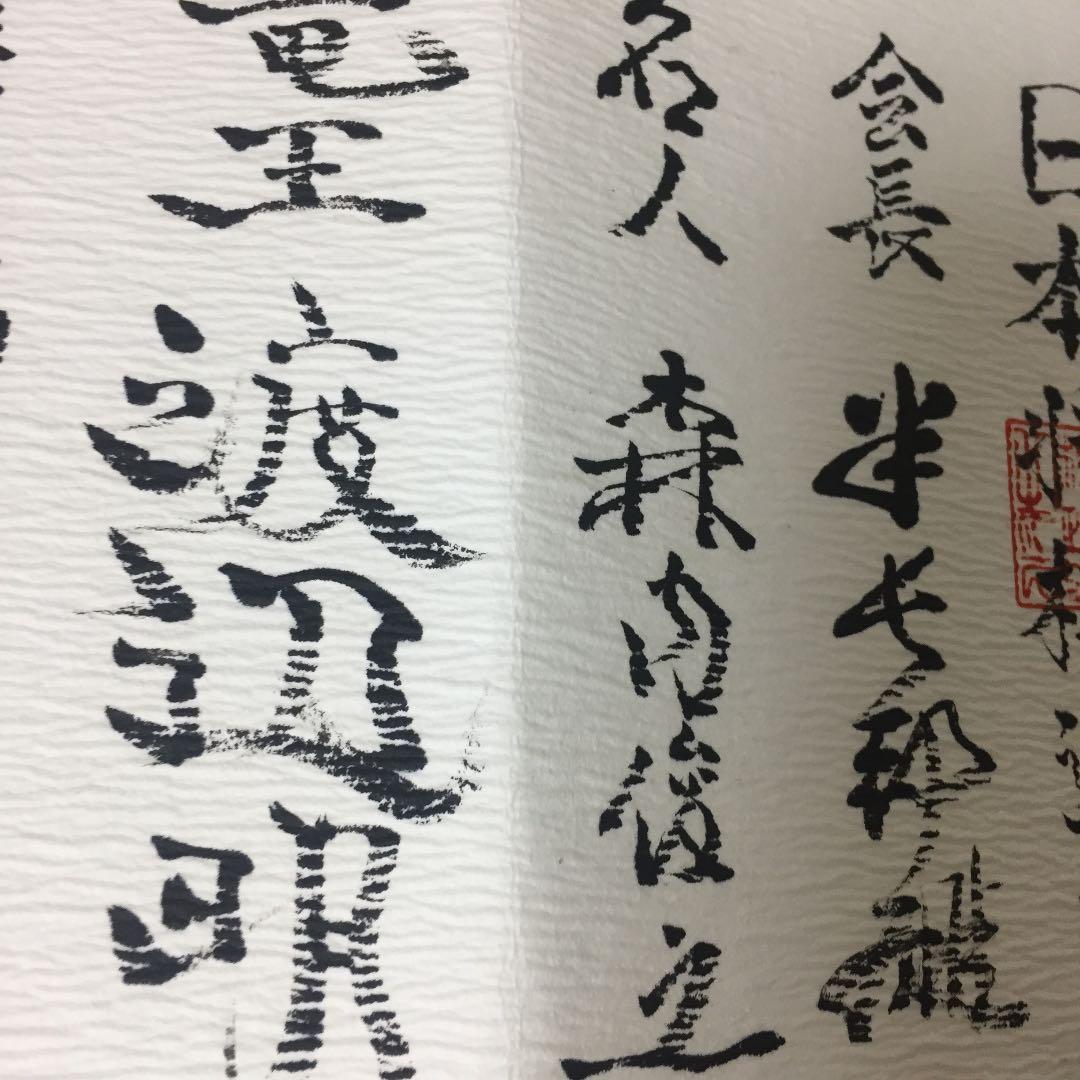 日本将棋連
会長 米長邦雄
名人 森内俊之
竜王 渡辺明